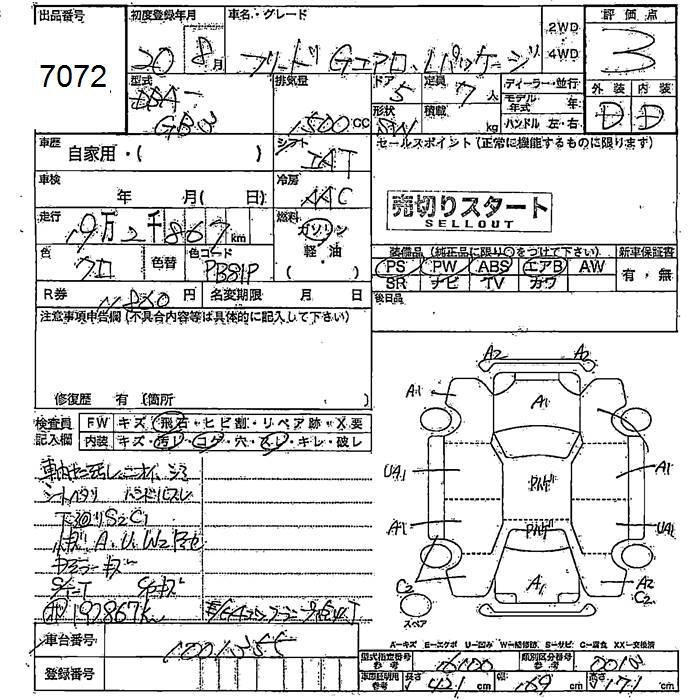 出品番号
7072
初度登録年月
20 8月
車名・グレード
フリード Gエアロ・Lパッケージ
2WD
4WD
評価点
3
外装 内装
D D
型式
DBA-
GB3
排気量
1500 cc
ドア
5
定員
7人
形状
SW
積載
kg
ディーラー・並行
モデル年式 年
ハンドル 左・右
車歴
自家用・( )
シフト
IAT
セールスポイント(正常に機能するものに限ります)
売切りスタート
SELLOUT
車検
年 月( 日)
冷房
AAC
走行
19万2千867km
燃料
ガソリン
軽・油
( )
色
クロ
色替
色コード
PB81P
装備品(純正品に限り○をつけて下さい)
PS PW ABS エアB AW
SR ナビ TV カワ
新車保証書
有・無
R券
円
名変期限 月 日
後日品
注意事項申告欄(不具合内容等は具体的に記入して下さい)
修復歴 有(箇所 )
検査員記入欄
FW キズ・飛石・ヒビ割・リペア跡・X要
内装 キズ・汚レ・コゲ・穴・スレ・キレ・破レ
下回リS2C1
A.U.W2
192867k
A2 A2
A1 A1
UA1 A1
A1 UA1
C2 A1 A2
C2
スペア
A=キズ E=エクボ U=凹み W=補修跡 S=サビ C=腐食 XX=交換済
車台番号
登録番号
型式指定番号
参考
16100
類別区分番号
参考
車庫証明用
参考
長さ 421 cm
幅 169 cm
高さ 171 cm